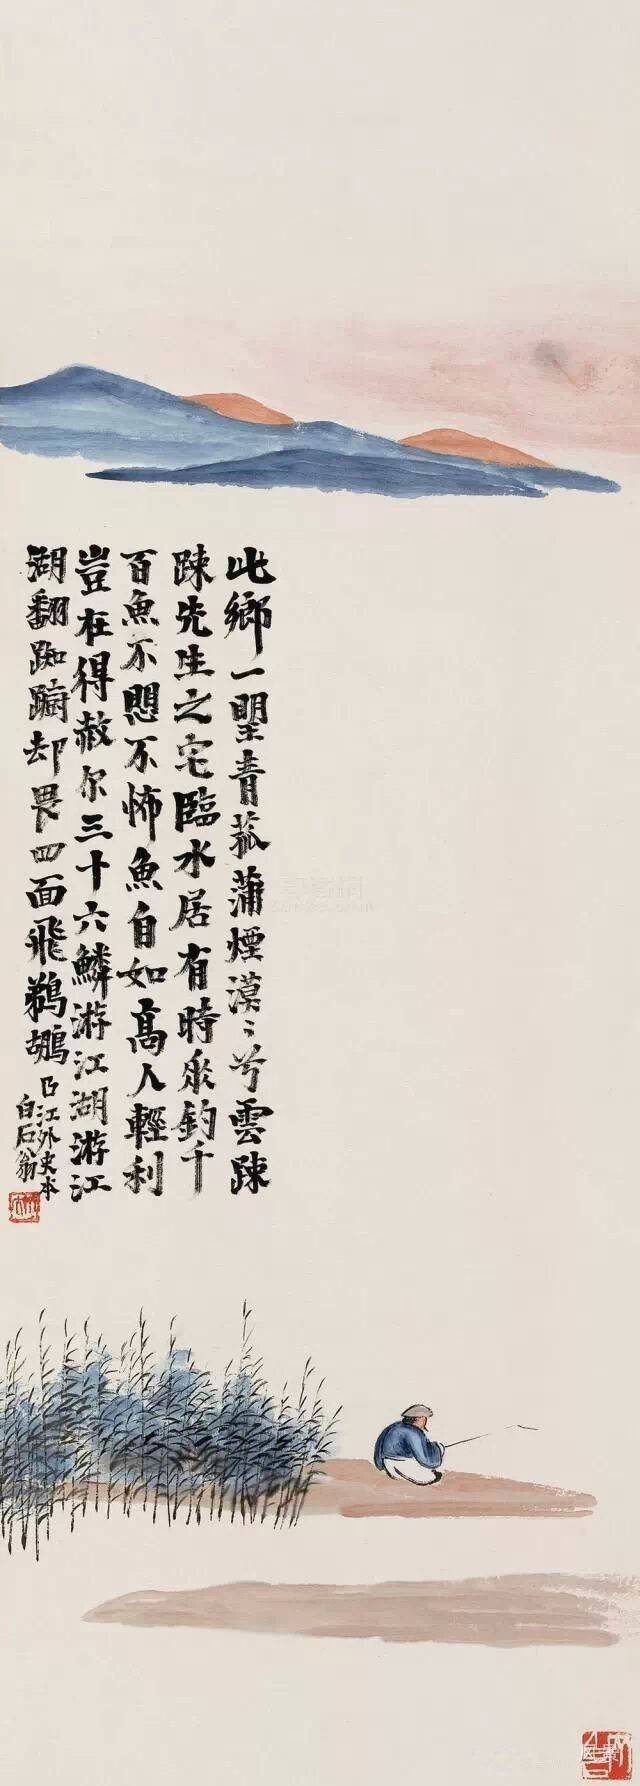 此鄉一望青菰蒲煙漠〻兮雲踈
踈先生之宅臨水居有時來釣千
百魚不愳不怖魚自如高人輕利
豈在得赦尔三十六鱗游江湖游江
湖翻踟躕却畏四面飛鵜鶘
江外史本
白石翁